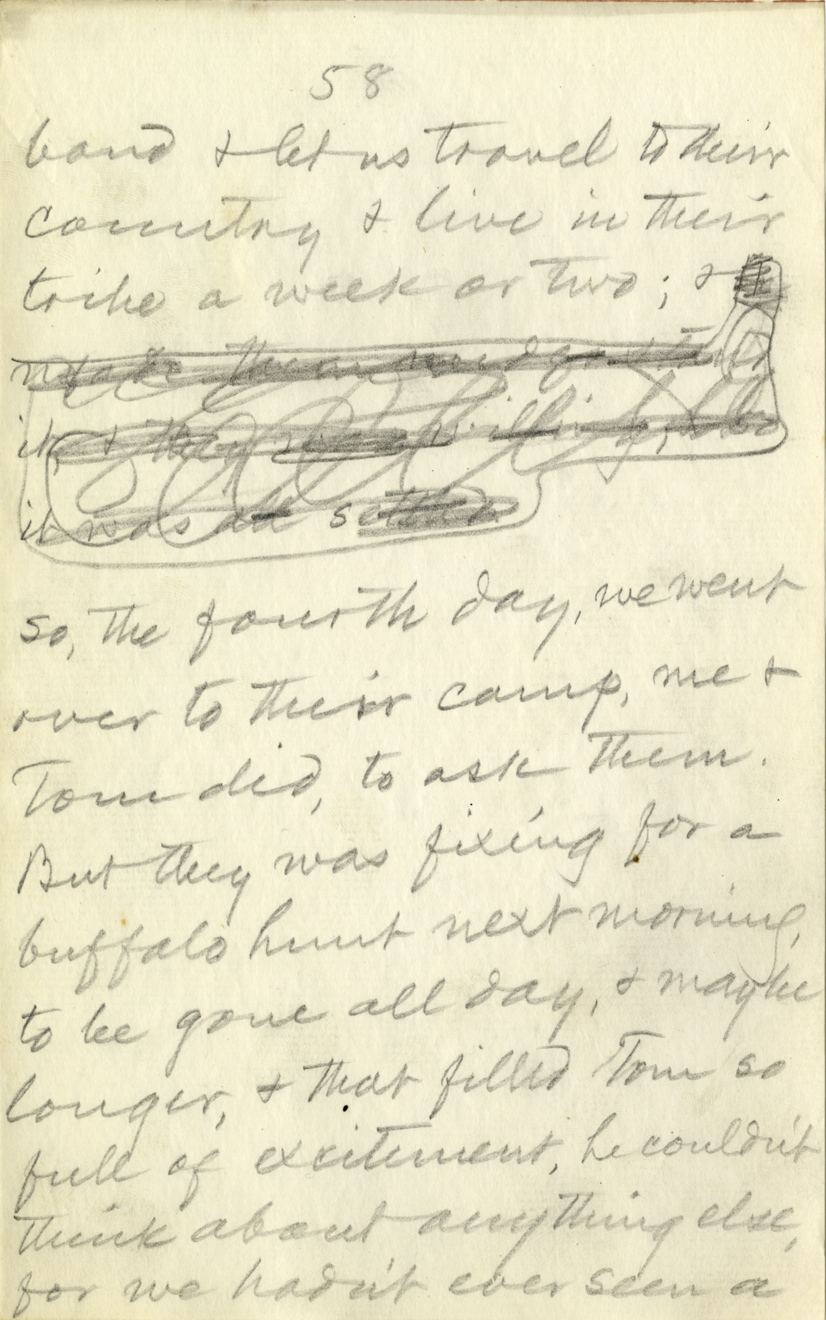 58
band & let us travel to their
country & live in their
tribe a week or two; &
it, & they was willing, & so
it was all settled
So, the fourth day, we went
over to their camp, me &
Tom did, to ask them.
But they was fixing for a
buffalo hunt next morning,
to be gone all day, & maybe
longer, & that filled Tom so
full of excitement, he couldn't
think about anything else,
for we hadn't ever seen a